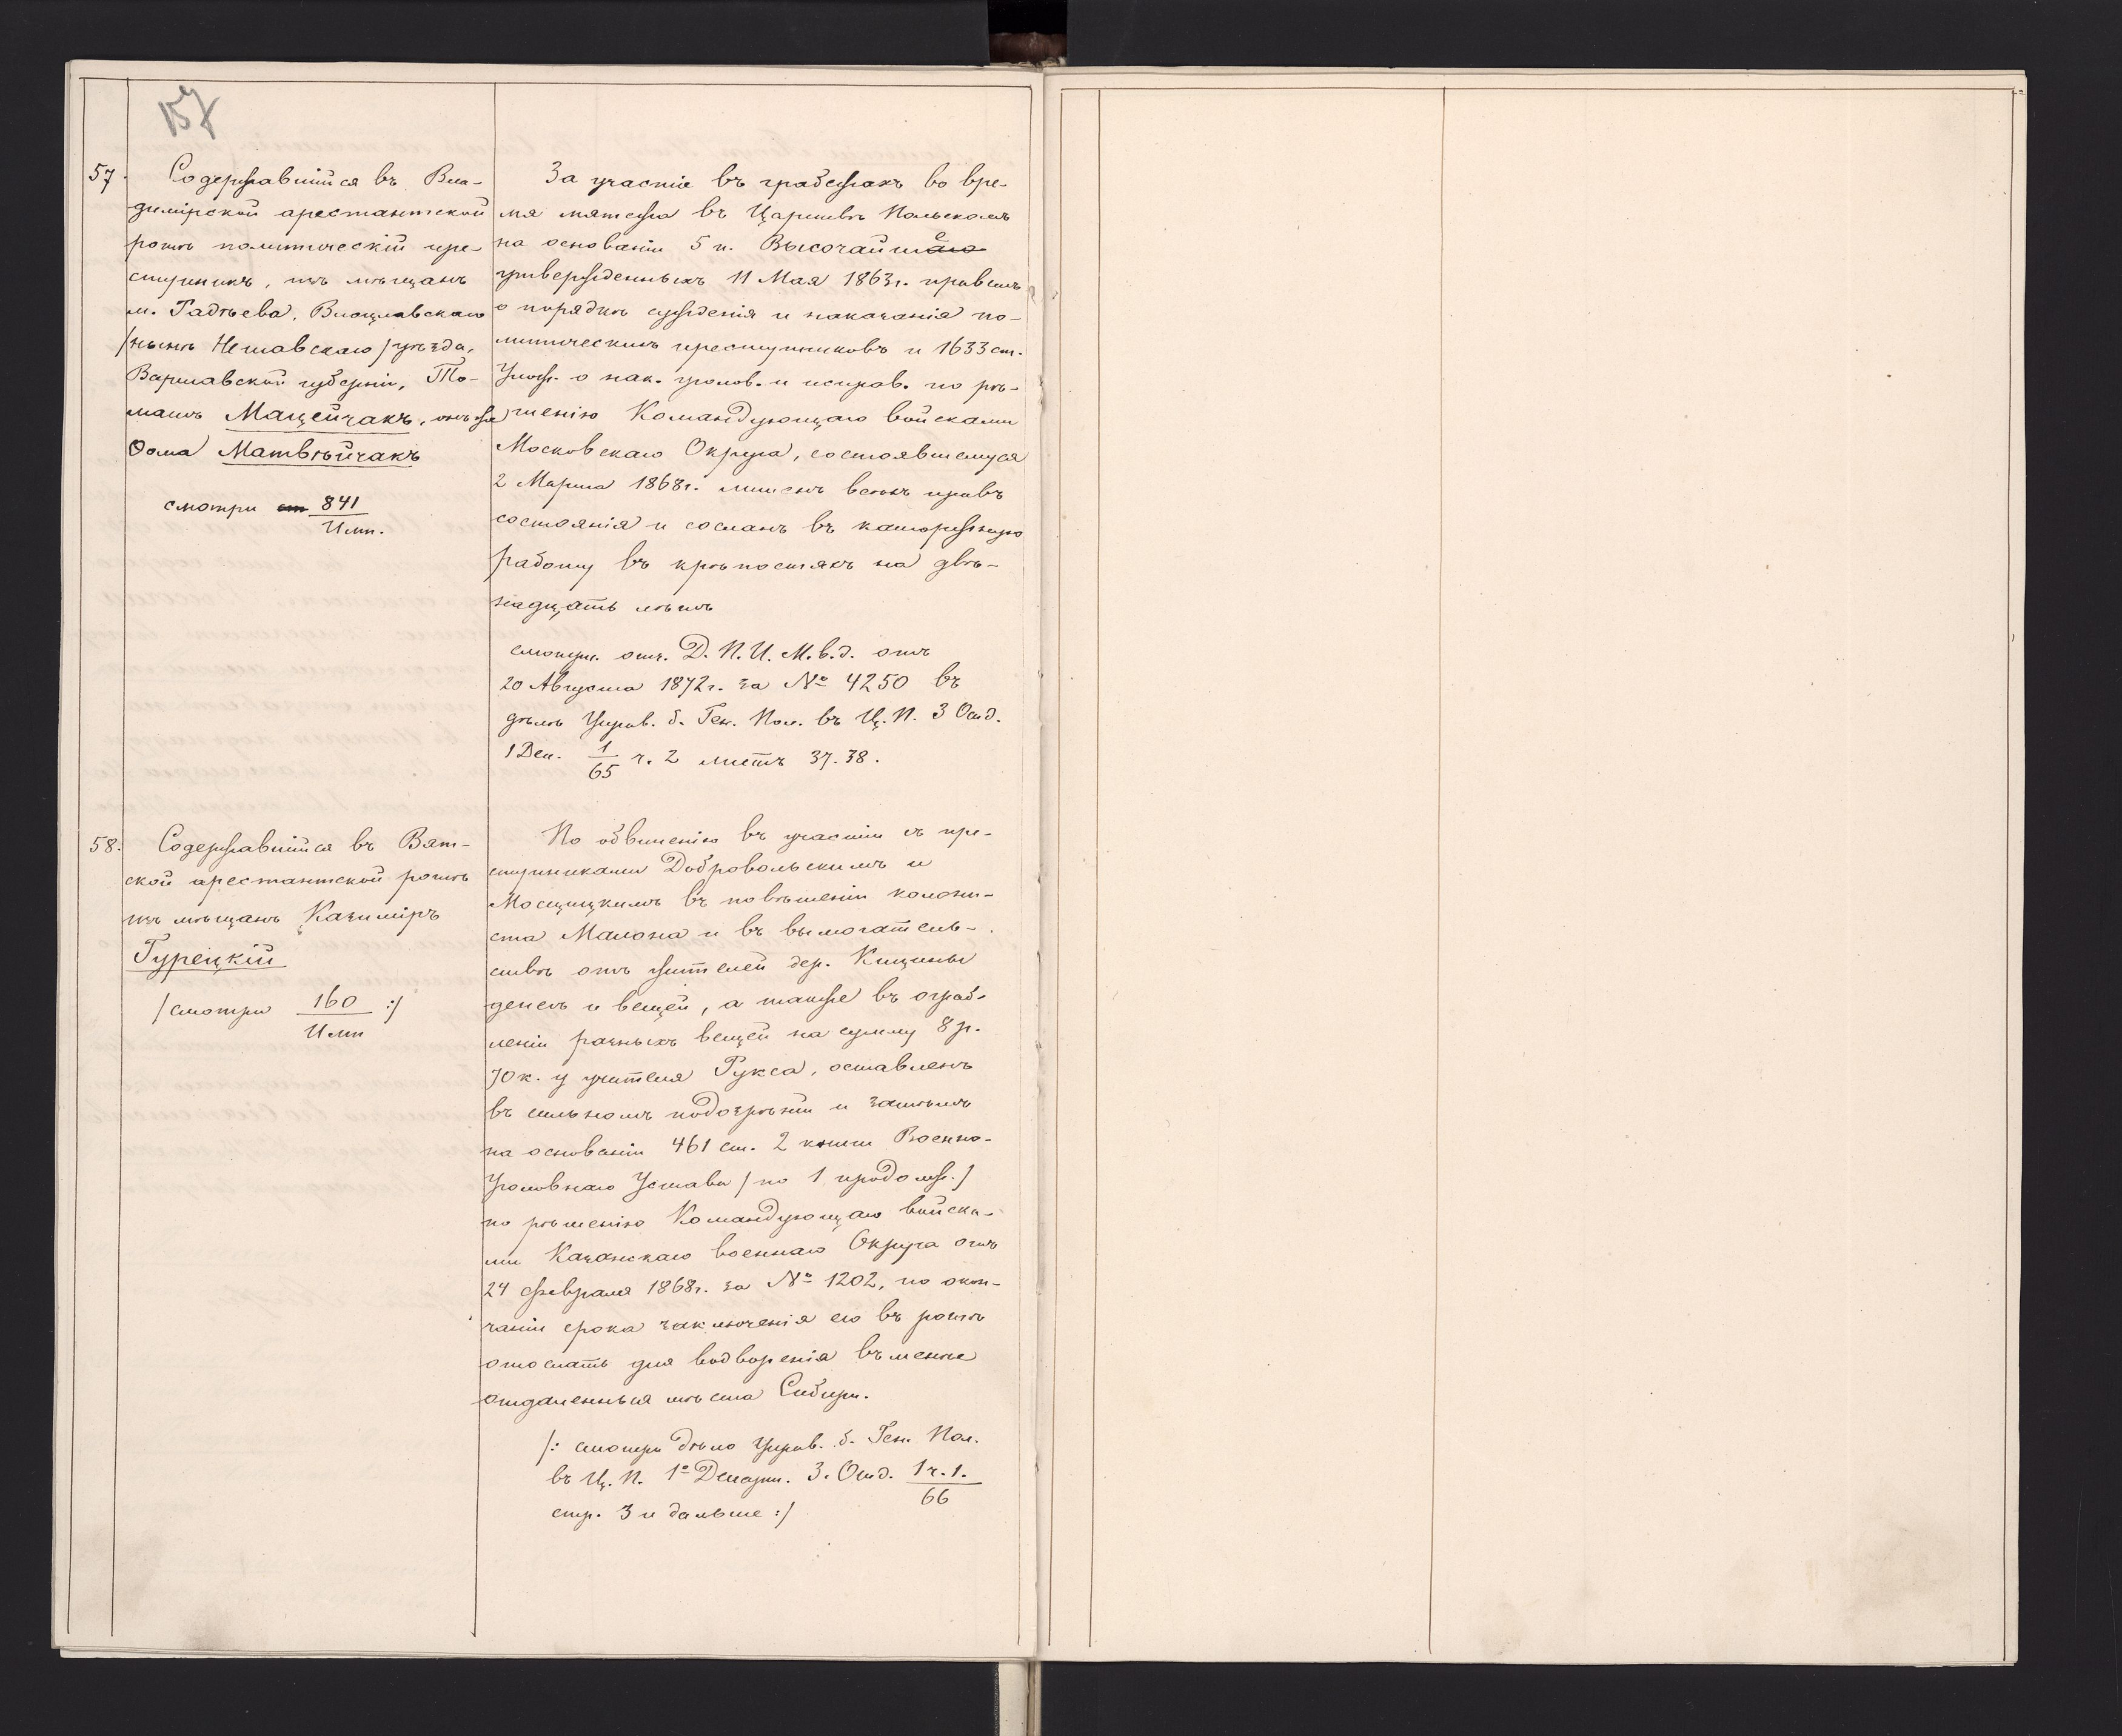 157
57.
Содержавшійся въ Вла-
димірской арестантской
ротѣ политическій пре-
ступникъ, изъ мѣщанъ
м. Радѣева, Влоцлавскаго
/нынѣ Нешавскаго/ уѣзда,
Варшавской губерніи, То-
машъ Мацейчакъ, онъ же
Ѳома Матвѣйчакъ
смотри ст 841
Имп.
За участіе въ грабежахъ во вре-
мя мятежа въ Царствѣ Польскомъ
на основаніи 5 п. Высочайше
утвержденныхъ 11 Мая 1863г. правилъ
о порядкѣ сужденія и наказанія по-
литическихъ преступниковъ и 1633 ст.
Улож. о нак. уголов. и исправ. по рѣ-
шенію Командующаго войсками
Московскаго Округа, состоявшемуся
2 Марта 1868г. лишенъ всѣхъ правъ
состоянія и сосланъ въ каторжную
работу въ крѣпостяхъ на двѣ-
надцать лѣтъ
смотри. отн. Д. П. И. М. в. д. отъ
20 Августа 1872г. за № 4250 въ
дѣлѣ Управ. б. Ген. Пол. въ Ц. П. 3 Отд.
1 Деп. 1/65 ч. 2 листъ 37. 38.
58.
Содержавшійся въ Вят-
ской арестантской ротѣ
изъ мѣщанъ Казиміръ
Гурецкій
/смотри 160 :/
Имп
По обвиненію въ участіи съ пре-
ступниками Добровольскимъ и
Мосцицкимъ въ повѣшеніи колони-
ста Малона и въ вымогатель-
ствѣ отъ жителей дер. Кицины
денегъ и вещей, а также въ ограб-
леніи разныхъ вещей на сумму 8 р.
70 к. у учителя Рукса, оставленъ
въ сильномъ подозрѣніи и затѣмъ
на основаніи 461 ст. 2 книги Военно-
Уголовнаго Устава / по 1 продолж. /
по рѣшенію Командующаго войска-
ми Казанскаго военнаго Округа отъ
24 февраля 1868г. за № 1202, по окон-
чаніи срока заключенія его въ ротѣ
отослать для водворенія въ менѣе
отдаленныя мѣста Сибири.
/: смотри дѣло Управ. б. Ген. Пол.
въ Ц. П. 1º Департ. 3. Отд. 1 ч. 1.
66
стр. 3 и дальше :/